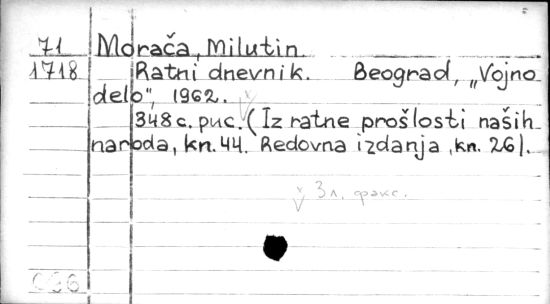 71 Morača, Milutin
1718 Ratni dnevnik. Beograd, „Vojno
delo“, 1962.
348 с. рис. (Iz ratne prošlosti naših
naroda, kn. 44. Redovna izdanja, kn. 26).
3 л. факс.